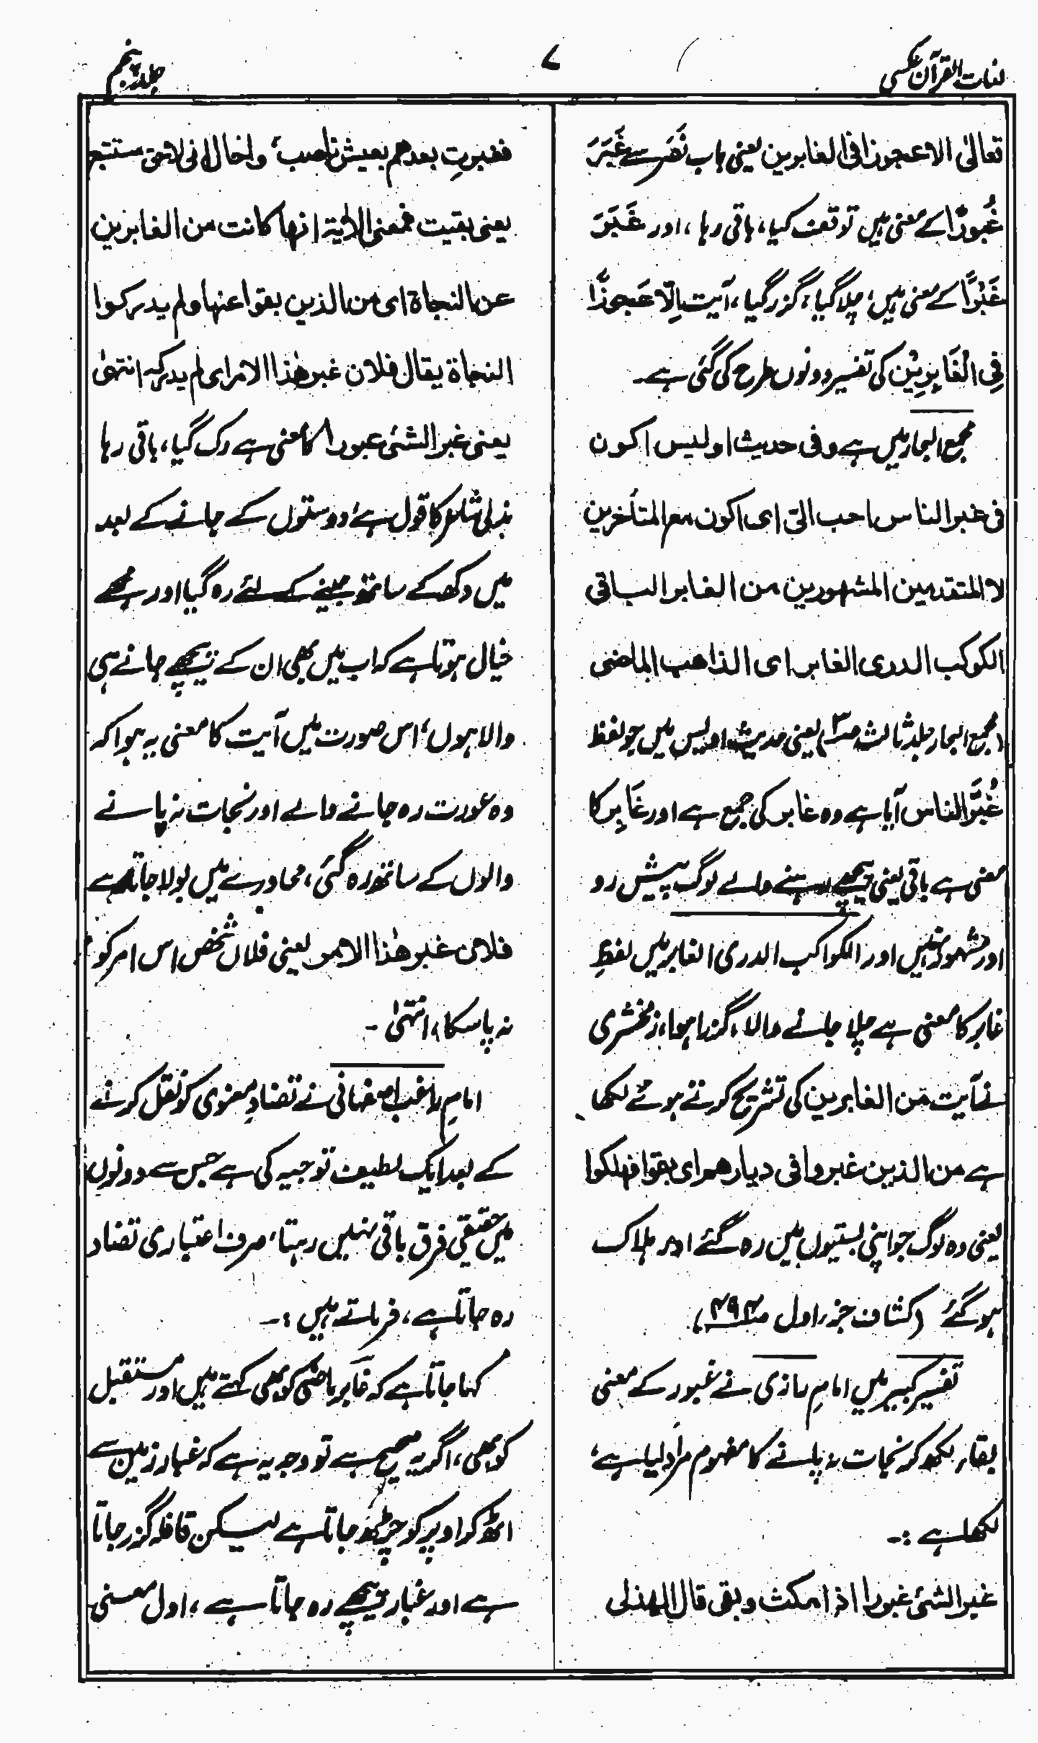 لغات القرآن عکسی
۷
جلد پنجم
تعالیٰ الا عجوزا فی الغابرین یعنی باب نَصَرَ سے غَبَرَ
غُبُورًا کے معنی ہیں توقف کیا، باقی رہا، اور غَبَرَ
غَبْرًا کے معنی ہیں؛ چلا گیا، گزر گیا، آیت اِلَّا عَجُوزًا
فِی الْغَابِرِیْن کی تفسیر دونوں طرح کی گئی ہے۔
مجمع البحار میں ہے وفی حدیث اولیس اکون
فی غبر الناس احب الیّ ای اکون مع المتأخرین
لا المتقدمین المشهورین من الغابر الباقی
الکوکب الدری الغابر ای الذاهب الماضی
(مجمع البحار جلد ثالث ص۳) یعنی حدیث اویس میں جو لفظ
غُبَّرُ الناس آیا ہے وہ غابر کی جمع ہے اور غَابِر کا
معنی ہے باقی یعنی پیچھے رہنے والے لوگ پیش رو
اور مشہور نہیں اور الکواکب الدری الغابر میں لفظِ
غابر کا معنی ہے چلا جانے والا، گزرا ہوا، زمخشری
نے آیت من الغابرین کی تشریح کرتے ہوئے لکھا
ہے من الذین غبروا فی دیارهم ای بقوا فهلکوا
یعنی وہ لوگ جو اپنی بستیوں میں رہ گئے اور ہلاک
ہو گئے (کشاف جزء اول ص۴۹۳)
تفسیر کبیر میں امام رازی نے غبور کے معنی
بقاء لکھ کر نجات نہ پانے کا مفہوم مراد لیا ہے،
لکھا ہے :۔
غبر الشئ غبورا اذا مکث وبقی قال الهذلی
فغبرت بعدهم بعیش ناصب، واخال انی لاحق مستتبع
یعنی بقیت فمعنی الآیة انها کانت من الغابرین
عن النجاة ای من الذین بقوا عنها ولم یدرکوا
النجاة یقال فلان غبر هٰذا الامر ای لم یدرکه انتهیٰ
یعنی غبر الشئ غبورا کا معنی ہے رک گیا، باقی رہا
ہذلی شاعر کا قول ہے، دوستوں کے جانے کے بعد
میں دکھ کے ساتھ جینے کے لئے رہ گیا اور مجھے
خیال ہوتا ہے کہ اب میں بھی ان کے پیچھے جانے ہی
والا ہوں، اس صورت میں آیت کا معنی یہ ہوا کہ
وہ عورت رہ جانے والے اور نجات نہ پانے
والوں کے ساتھ رہ گئی، محاورے میں بولا جاتا ہے
فلان غبر هٰذا الامر یعنی فلاں شخص اس امر کو
نہ پا سکا، انتہیٰ ۔
امام راغب اصفہانی نے تضادِ معنوی کو نقل کرنے
کے بعد ایک لطیف توجیہ کی ہے جس سے دونوں
میں حقیقی فرق باقی نہیں رہتا، صرف اعتباری تضاد
رہ جاتا ہے، فرماتے ہیں :۔
کہا جاتا ہے کہ غابر ماضی کو بھی کہتے ہیں اور مستقبل
کو بھی، اگر یہ صحیح ہے تو وجہ یہ ہے کہ غبار زمین سے
اٹھ کر اوپر کو چڑھ جاتا ہے لیکن قافلہ گزر جاتا
ہے اور غبار پیچھے رہ جاتا ہے، اول معنی